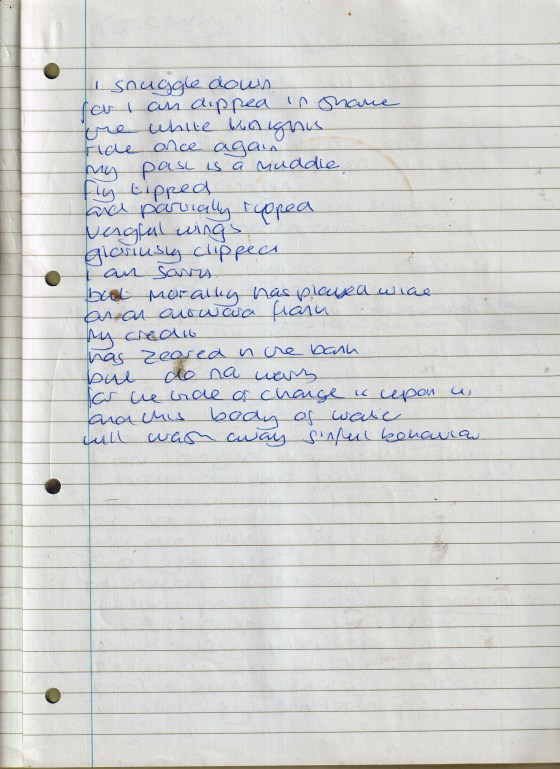 I snuggle down
for I am dipped in shame
the white knights
ride once again
My past is a muddle.
fly tipped
and partially ripped
vengful wings
gloriously clipped
I am sorry
but morality has played wide
on an awkward flank
My credit
has zeroed in the bank
but do not worry
for the tide of change is upon us
and this body of water
will wash away sinful behaviour